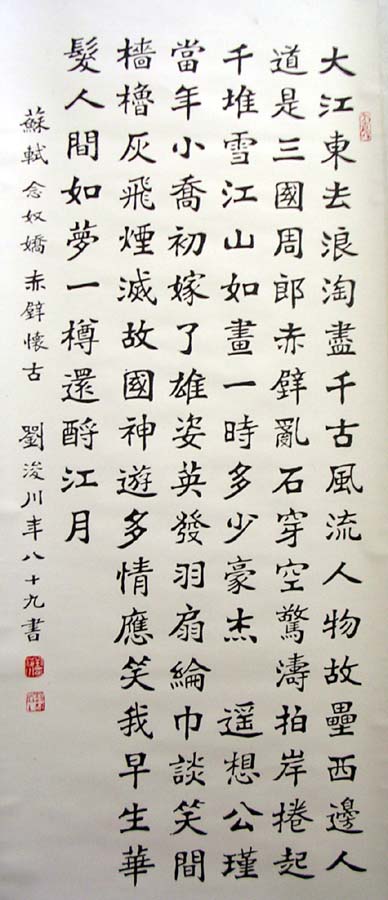 大江東去浪淘盡千古風流人物故壘西邊人
道是三國周郎赤壁亂石穿空驚濤拍岸捲起
千堆雪江山如畫一時多少豪杰 遥想公瑾
當年小喬初嫁了雄姿英發羽扇綸巾談笑間
檣櫓灰飛煙滅故國神遊多情應笑我早生華
髮人間如夢一樽還酹江月
蘇軾 念奴嬌 赤壁懷古 劉浚川年八十九書